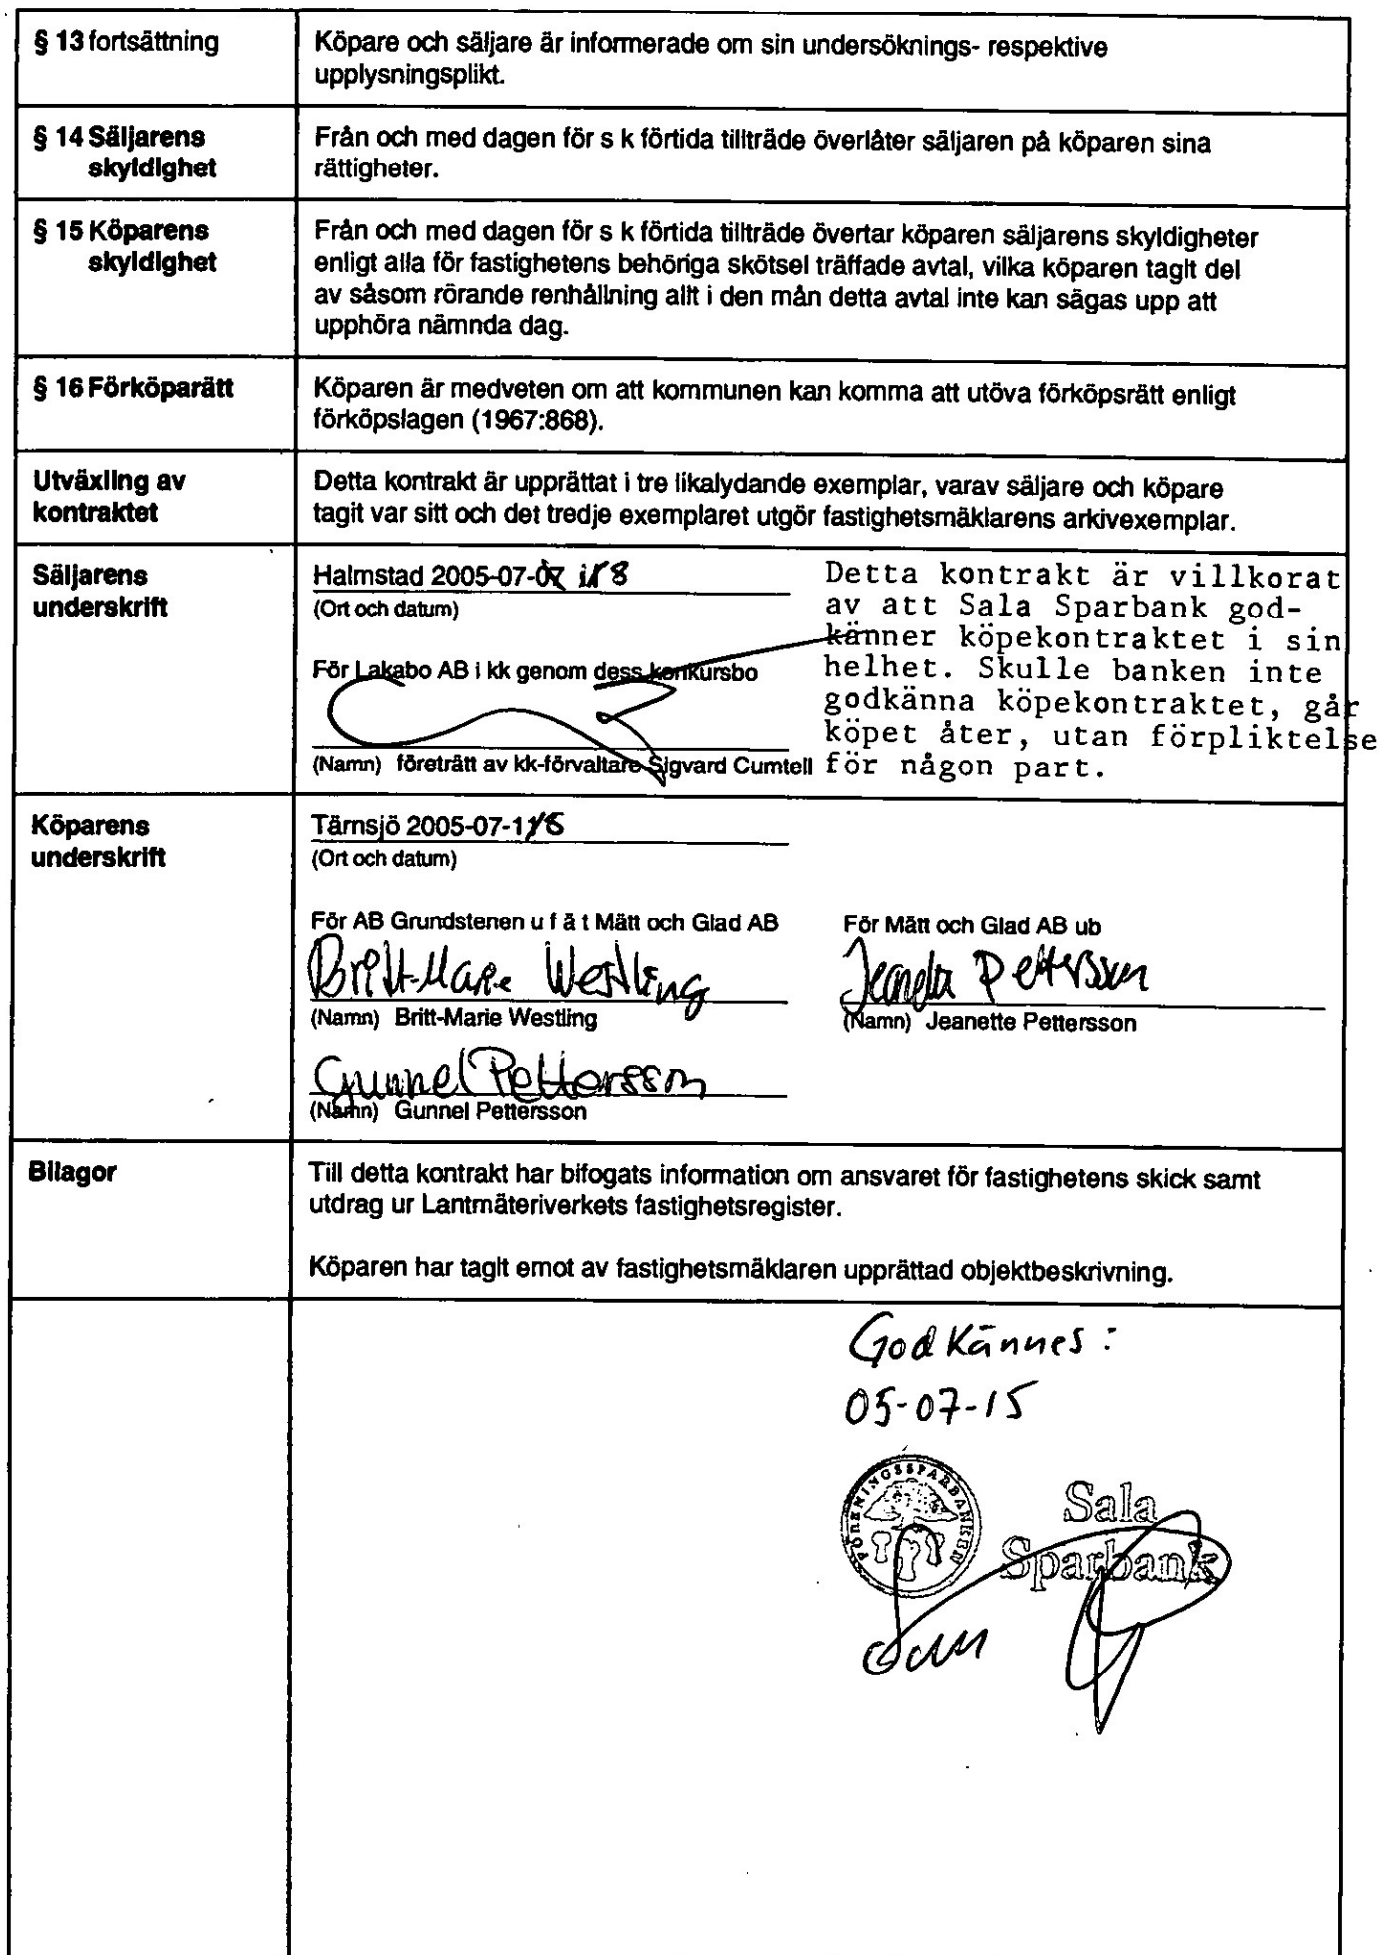 § 13 fortsättning
Köpare och säljare är informerade om sin undersöknings- respektive
upplysningsplikt.
§ 14 Säljarens
skyldighet
Från och med dagen för s k förtida tillträde överlåter säljaren på köparen sina
rättigheter.
§ 15 Köparens
skyldighet
Från och med dagen för s k förtida tillträde övertar köparen säljarens skyldigheter
enligt alla för fastighetens behöriga skötsel träffade avtal, vilka köparen tagit del
av såsom rörande renhållning allt i den mån detta avtal inte kan sägas upp att
upphöra nämnda dag.
§ 16 Förköparätt
Köparen är medveten om att kommunen kan komma att utöva förköpsrätt enligt
förköpslagen (1967:868).
Utväxling av
kontraktet
Detta kontrakt är upprättat i tre likalydande exemplar, varav säljare och köpare
tagit var sitt och det tredje exemplaret utgör fastighetsmäklarens arkivexemplar.
Säljarens
underskrift
Halmstad 2005-07-
(Ort och datum)
För Lakabo AB i kk genom dess konkursbo
(Namn) företrätt av kk-förvaltare Sigvard Cumtell
Detta kontrakt är villkorat
av att Sala Sparbank god-
känner köpekontraktet i sin
helhet. Skulle banken inte
godkänna köpekontraktet, går
köpet åter, utan förpliktelse
för någon part.
Köparens
underskrift
Tärnsjö 2005-07-
(Ort och datum)
För AB Grundstenen u f ä t Mätt och Glad AB
Britt-Marie Westling
(Namn) Britt-Marie Westling
Gunnel Pettersson
(Namn) Gunnel Pettersson
För Mätt och Glad AB ub
Jeanette Pettersson
(Namn) Jeanette Pettersson
Bilagor
Till detta kontrakt har bifogats information om ansvaret för fastighetens skick samt
utdrag ur Lantmäteriverkets fastighetsregister.
Köparen har tagit emot av fastighetsmäklaren upprättad objektbeskrivning.
Godkännes:
05-07-15
FÖRENINGSSPARBANKEN
Sala
Sparbank